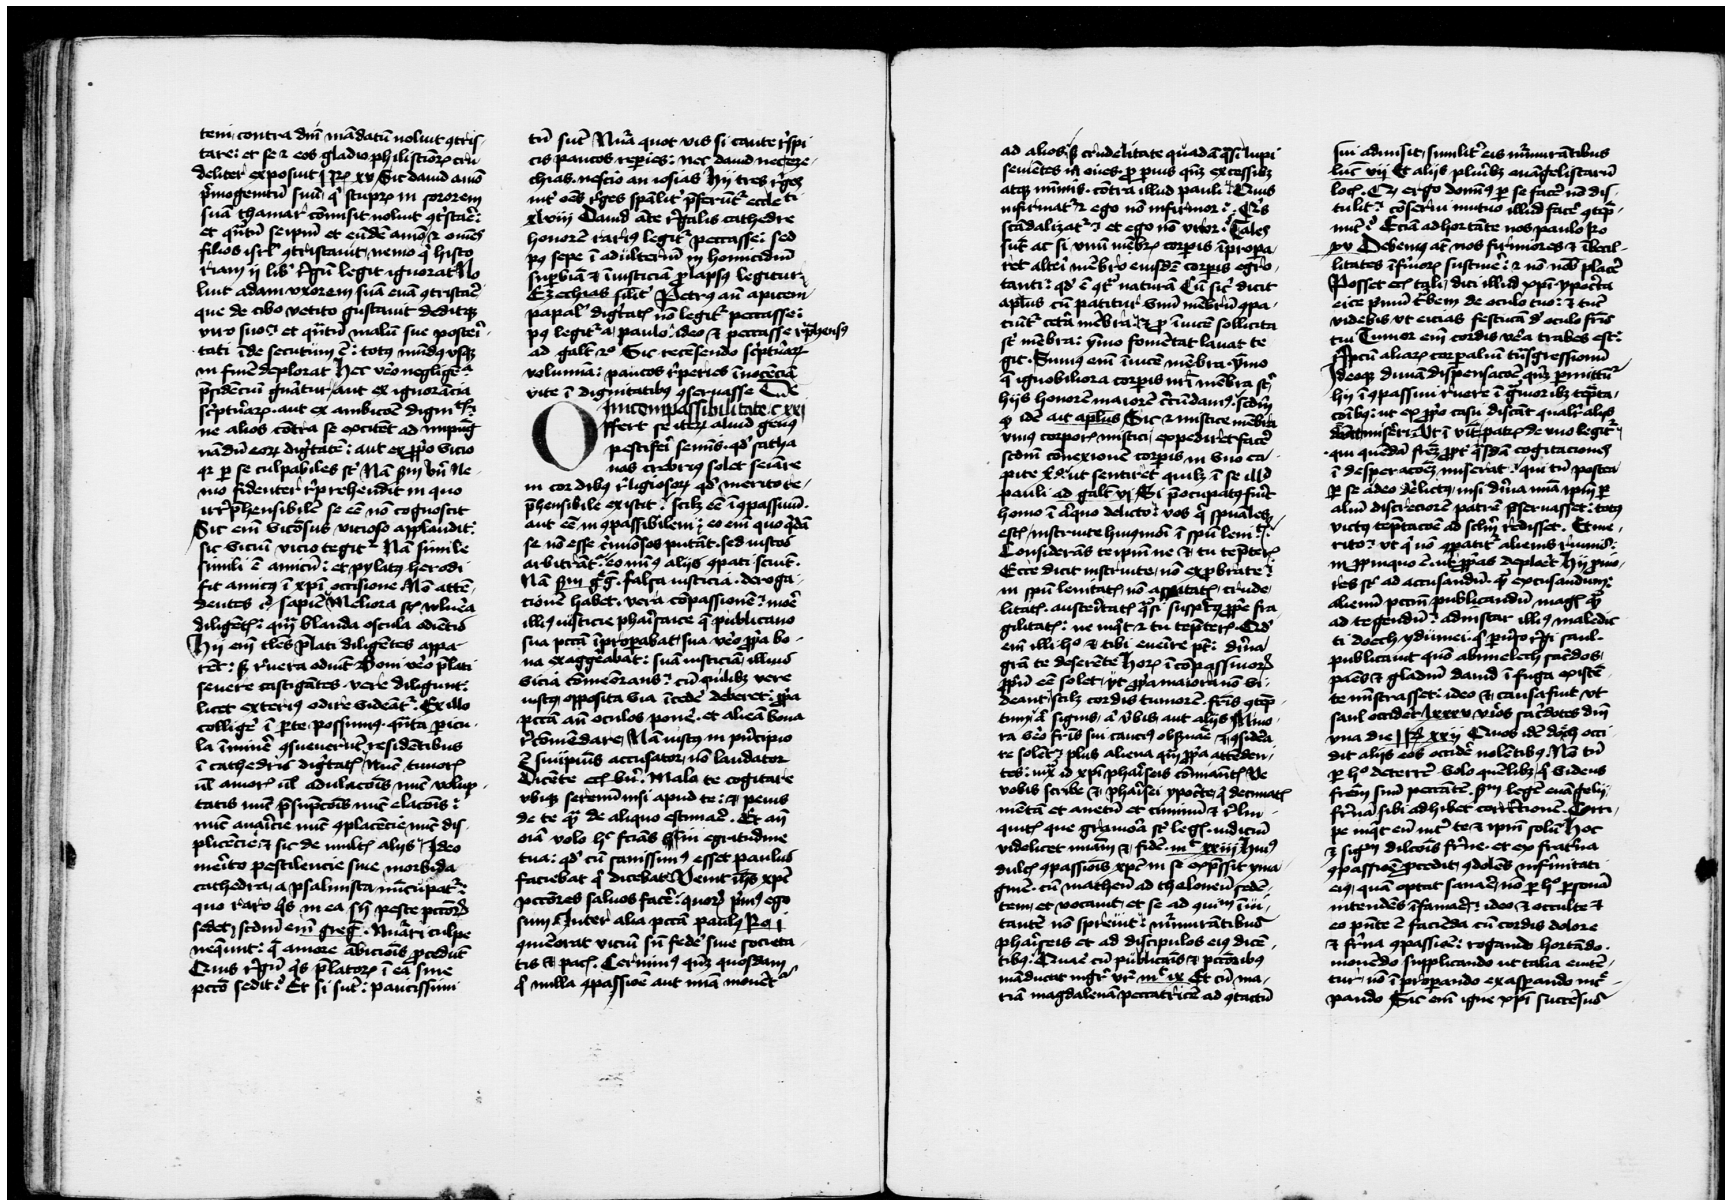 tem contra dm̄ mādatū noluit ꝯtris-
tare: et se ⁊ eos gladio philistiorꝫ cru
deliter exposuit j Rꝫ xv Sic dauid amō
p̄mogenitū suū q̄ stuprꝫ in sororem
suā thamar cōmisit noluit ꝯtⁱstaē:
et qn̄tū seipm̄ et eūdē amō ⁊ om̄es
filios isrl̄ ꝯtristauit nemo q̄ histo
riam ij lib̄ rꝫgū legit ignorat No
luit adam vxorem suā euā ꝯtristaē
que de cibo vetito gustauit deditqꝫ
viro suo: et qn̄tū malū sue posteri-
tati īde secutum ē: totꝰ mūdꝰ vsqꝫ
in finē deplorat Hec vēo negligēᵃ
p̄sidēciū gnātur aut ex ignorācia
sc̄pturaꝝ aut ex ambicōe
ne alios cōtra se excitēt ad impug
nādū eoꝝ dignitatē: aut ex ꝓpo vicio
qꝛ ꝑ se culpabiles st̄ Nā
mo fidenter rep̄hendit in quo
irrep̄hensibilē se eē nō cognoscit
Sic em̄ viciosus vicioso applaudit:
sic viciū vicio tegitᵣ Nā simile
simili ē amicū: et pylatꝰ herodi
fit amicꝰ ī xp̄i occisione Nō attē-
dentes Meliora st̄ vulnēa
diligētꝫ: qm̄ blanda oscula odientis
Hij em̄ p̄lati diligētes appa
rēt: sꝫ rēuera odiūt Boni vēo p̄lati
seuere castigātes vere diligunt:
licet exteriꝰ odire videāt Ex illo
colligē ī ꝑte possumꝰ qn̄ta pericu-
la īminē ꝯsueuerūt residentibus
ī cathedris dignitatꝫ Nūc timorꝫ
ul̄ amorꝫ ul̄ adulacōis nūc volup-
tatis nūc p̄supcōis nūc elacōis:
nūc auaricie nūc ꝯplacēcie nūc dis-
plicēcie ⁊ sic de multꝫ alijs Ideo
mēito pestilencie siue morbida
cathedra a psalmista nūcupatᵣ:
quo raro qͥs in ea sn̄ peste pctōrꝫ
sedet scdm̄ em̄ greḡ Nuari culpe
neq̄unt: q̄ amore ābicōis ꝓcedūt
Quis rꝫgū qͥs p̄latorꝫ ī ea sine
pctō sedit Et si sūt: paucissimi
tn̄ sūt Nūᵃ quot vis si caute rꝫspi
cis paucos repies: nec dauid nec eze-
chias nescio an iosias Hij tres rꝫges
int̄ oēs rꝫges spālit̄ p̄ferūtᵣ eccleᵗⁱ
xlviii Dauid āte rꝫgalis cathedre
honorē rariꝰ legitᵣ peccasse: sed
pꝰ sepe ī adulteriū in homicidiū
supbiā ⁊ īiusticiā ꝓlapsꝰ legitur
Ezechias silit̄ Petrꝰ an̄ apicem
papal' dignitatꝫ nō legitᵣ peccasse:
pꝰ legitᵣ a paulo ideo ⁊ peccasse rep̄hensꝰ
ad galat̄ 2º Sic recēsendo sc̄pturaꝝ
volumīa: paucos reperies īnocēciā
vite ī dignitatibꝰ ꝯseruasse
De incompassibilitate c xxi
Offert se iterꝫ aliud genꝰ
pestiferi semīs qd' satha
nas crebriꝰ solet seīare
in cordibꝰ religiosorꝫ qd' merito re-
p̄hensibile existit: scilꝫ eē īꝯpassiuū
aut eē inꝯpassibilem: eo em̄ quo q̄dā
se nō esse cⁱmīosos putāt sed iustos
arbitrātᵣ: eo minꝰ alijs ꝯpati sciūt
Nā scdm̄ gḡ falsa iusticia deroga-
tionē habet vera compassionē: mōē
illiꝰ iusticie pharisaice q̄ publicano
sua pctā īproperabat sua vēo ꝓpa bo-
na exaggēabat: suā iusticiā illius
vicia cōmeōrans: cū quilibꝫ vere
iustꝰ opposita via īcedē deberet: ꝓpa
pctā an̄ oculos ponē et alienā bona
recōmēdare Nā iustꝰ in principio
ē suiipsius accusator nō laudator
Dicēte eciā bn̄ Mala te cogitare
vbiqꝫ seremū nisi apud te: ⁊ penis
de te qm̄ de aliquo estimaē Et an̄
oīa volo hᵒ sciās in egritudine
tua: qd' cū sanissimꝰ esset paulus
faciebat qͥ dicebat Venit ihs xp̄c
pctōres saluos facē: quorꝫ p̄mꝰ ego
sum Inter alia pctā paulꝰ Ro j
quīerat viciū sn̄ federe siue societa-
tis ⁊ pacꝫ Cernimꝰ qn̄qꝫ quosdam
qͥ nulla ꝯpassiōe aut mīā mouētᵣ
ad alios sꝫ crudelitate quadā qͣsi lupi
seuiētes in oues ꝓ pijs qn̄qꝫ excessibꝫ
atqꝫ mīmis cōtra illud pauli Quis
infirmatᵣ ⁊ ego nō infirmor: Qͥs
scādalizatᵣ ⁊ ego nō vror: Tales
sūt ac si vnū mēbrꝫ corpis īpropa-
ret alteri mēbro eiusdē corpis egro-
tanti: qd' ē ꝯtᵃ naturā Cū sic dicit
apl̄us cū patitur vnū mēbrū ꝯpa-
ciūtᵣ cetā mēbra: ⁊ ꝓ īuicē sollicita
st̄ mēbra: ymo fomētat lauat te
git Sumꝰ em̄ īuicē mēbra ymo
q̄ ignobiliora corpis nr̄i mēbra st̄
hijs honorē maiorē cⁱcūdamꝰ: scdm̄
qd' idē ait apl̄us Sic ⁊ mistice mēbra
vniꝰ corporꝫ mistici expediret facē
scdm̄ conexionē corpis in vno ca-
pite xp̄o ut sentiret quilꝫ ī se illd̄
pauli ad galat̄ vj Si p̄ocupatꝰ fūit
homo ī aliquo delicto: vos qͥ spūales
estꝫ instruite huiꝰmōi ī spū leni
Considerās teip̄m ne ⁊ tu tēpterꝫ
Ecce dicit instruite nō exprobrate:
in spū lenitatꝫ nō asꝑitatꝫ crude-
litatꝫ austeritatꝫ qͣsi suspctꝰ ꝓpe fra
gilitatꝫ: ne inqͣt ⁊ tu tēpterꝫ Qd'
em̄ illi hᵒ ⁊ tibi euēire pt̄: diuīa
grā te deserēte Horꝫ īcōpassiuorꝫ
ꝓpriū eē solet ut ꝓpa maiora nō vi-
deant scilꝫ cordis tumorē fris ꝯtēp-
tum ī signis ī v̄bis aut alijs Mino-
ra vēo fris sui caucꝰ obseruāē ⁊ ꝯsidēa
re solēt: plus aliena qm̄ ꝓpa attēden-
tes: iuxᵃ id xp̄i phariseis cōminātꝫ Ve
vobis scribe ⁊ pharisei ypocrite qͥ decimatꝫ
mētā et anetū et ciminū ⁊ relin-
quitꝫ que grauiora st̄ legꝫ iudiciū
videlicet mīam ⁊ fidē mᵗ xxiij Huiꝰ
dulcꝫ ꝯpassiōis xp̄c in se exp̄ssit yma
ginē cū matheū ad theloneū sedē-
tem et vocauit et se ad quiu īui-
tantē nō spreuit: mūrmurātibus
phariseis et ad discipulos eiꝰ dicē-
tibꝰ Quaē cū publicāis ⁊ pctōribꝰ
māducat mgr̄ vr̄ mᵗ ix Et cū ma-
riā magdalenā peccatricē ad ꝯtactū
sui admisit similitᵣ eis mūrmurātibus
luc̄ vij Et alijs pluribꝫ euāgelistarū
locꝫ Cū ergo domīꝰ ꝑ se facē nō dis-
tulitᵣ: cōserui mutuo illud facē ꝯtēp-
nūt Eciā adhortāte nos paulo Ro
xv Debemꝰ at̄ nos firmiores ⁊ ībecil-
litates īfirmorꝫ sustinē: ⁊ nō nob̄ placē
Posset eciā tali dici illud xp̄i ypocrita
eice p̄mū tᵃbem de oculo tuo: ⁊ tūc
videbis ut eicias festucā d' oculo fris
tui Tumor em̄ cordis vēa trabes est:
Apciū aliarꝫ corꝑaliū trāsgressionū
Ideoqꝫ diuinā dispensacōe qn̄qꝫ permittūtᵣ
hij īꝯpassiui ruere ī grauiorībꝰ tēpta-
cōibꝰ: ut ex ꝓpo casu discāt qualitᵣ alijs
misereri Ut ī vit̄ patrꝫ de vno legitᵣ
qui quendā fr̄em ꝓpt̄ qͣsdā cogitaciones
ī desperacōem miserat: qui tn̄ postea
ꝑ se adeo delictꝰ nisi diuīa mīa ip̄m ꝑ
aliū discreciorē patrē p̄seruasset: totꝰ
victꝰ tēptacōe ad sclm̄ redisset Et me-
rito: ut qͥ nō ꝯpatitᵣ alienis ruinis:
in ꝓpinquo ē ut ꝓpas deploret Hij ꝓnio-
res st̄ ad accusandū qm̄ excusandum:
alienū pctm̄ publicandū magꝫ qm̄
ad tegendū: ad instar illiꝰ maledic-
ti doech ydumei qͥ pᵐᵒ regi saul
publicauit quō abimelech sacēdos
panes ⁊ gladiū dauid ī fuga existē-
te ministrasset: ideo ⁊ causa fuit ut
saul occideret lxxxv viros sacerdotes dm̄
vna die j Rꝫ xxij Quos idē doech occi
dit alijs eos occidē nolētibꝰ Nā tn̄
ꝑ hᵒ deterrē volo quēlibꝫ qͥ videns
frēm suū peccātē scdm̄ legē euāgelij
fr̄nā sibi adhibet correctionē Corri-
pe inqͣt eū int̄ te ⁊ ip̄m solū Hoc
⁊ signū dilcōis fr̄ne et ex fraterna
ꝯpassiōe ꝓcedit ꝯdolēs infirmitati
eiꝰ quā optat sanaē nō ꝑ hᵒ ꝑsonā
intendēs īfamaē: ideo ⁊ occulte ⁊
eo pn̄te ē facieda cū cordis dolore
⁊ fr̄na ꝯpassiōe: rogando hortādo
monēdo supplicando ut talia euitē-
tur nō īproperando exasperando incᵣ-
pando Sic em̄ igne xp̄i succēsus